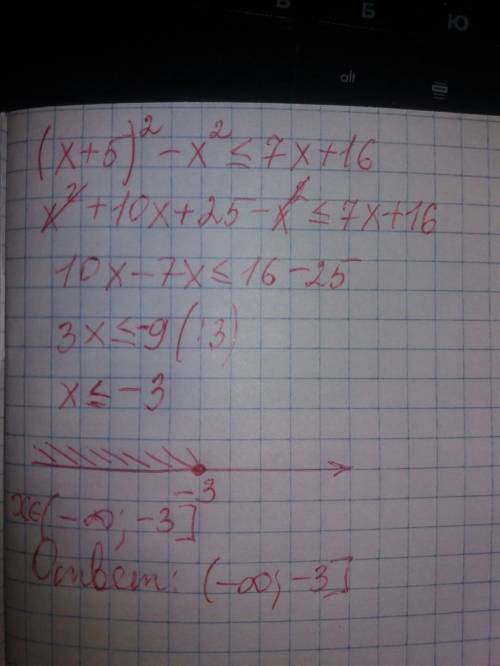 Б Ю
alt
(x+5)² - x² ≤ 7x+16
x² + 10x + 25 - x² ≤ 7x+16
10x - 7x ≤ 16 - 25
3x ≤ -9 (:3)
x ≤ -3
-3
x∈(-∞; -3]
Ответ: (-∞; -3]